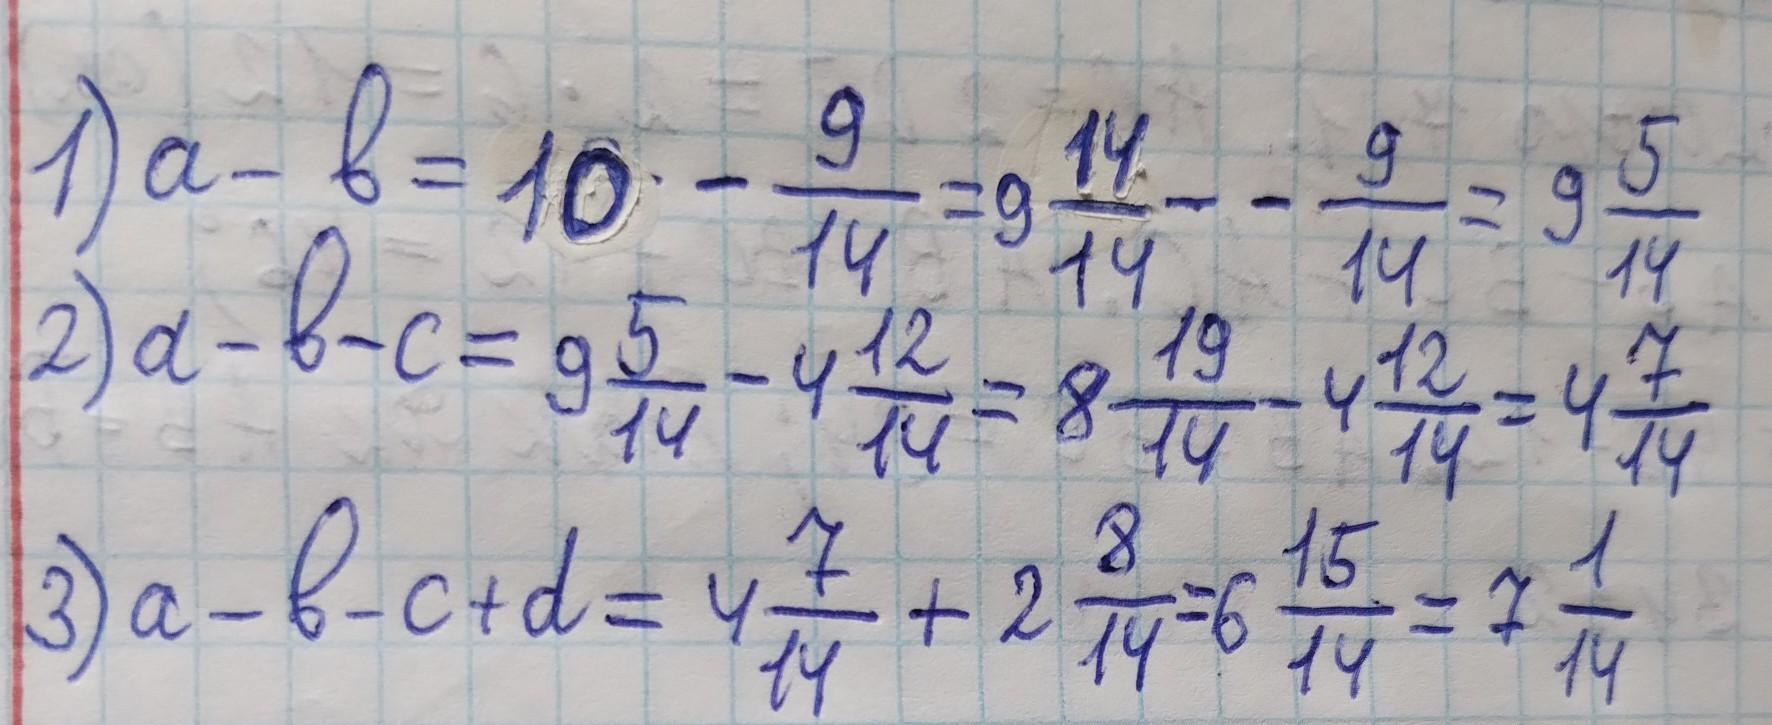 1) a - b = 10 - 9/14 = 9 14/14 - - 9/14 = 9 5/14
2) a - b - c = 9 5/14 - 4 12/14 = 8 19/14 - 4 12/14 = 4 7/14
3) a - b - c + d = 4 7/14 + 2 8/14 = 6 15/14 = 7 1/14